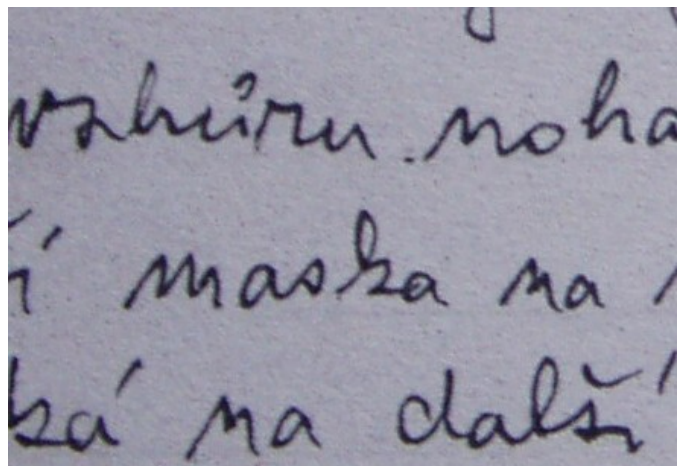 vzhůru noha
í maska na
ká na další